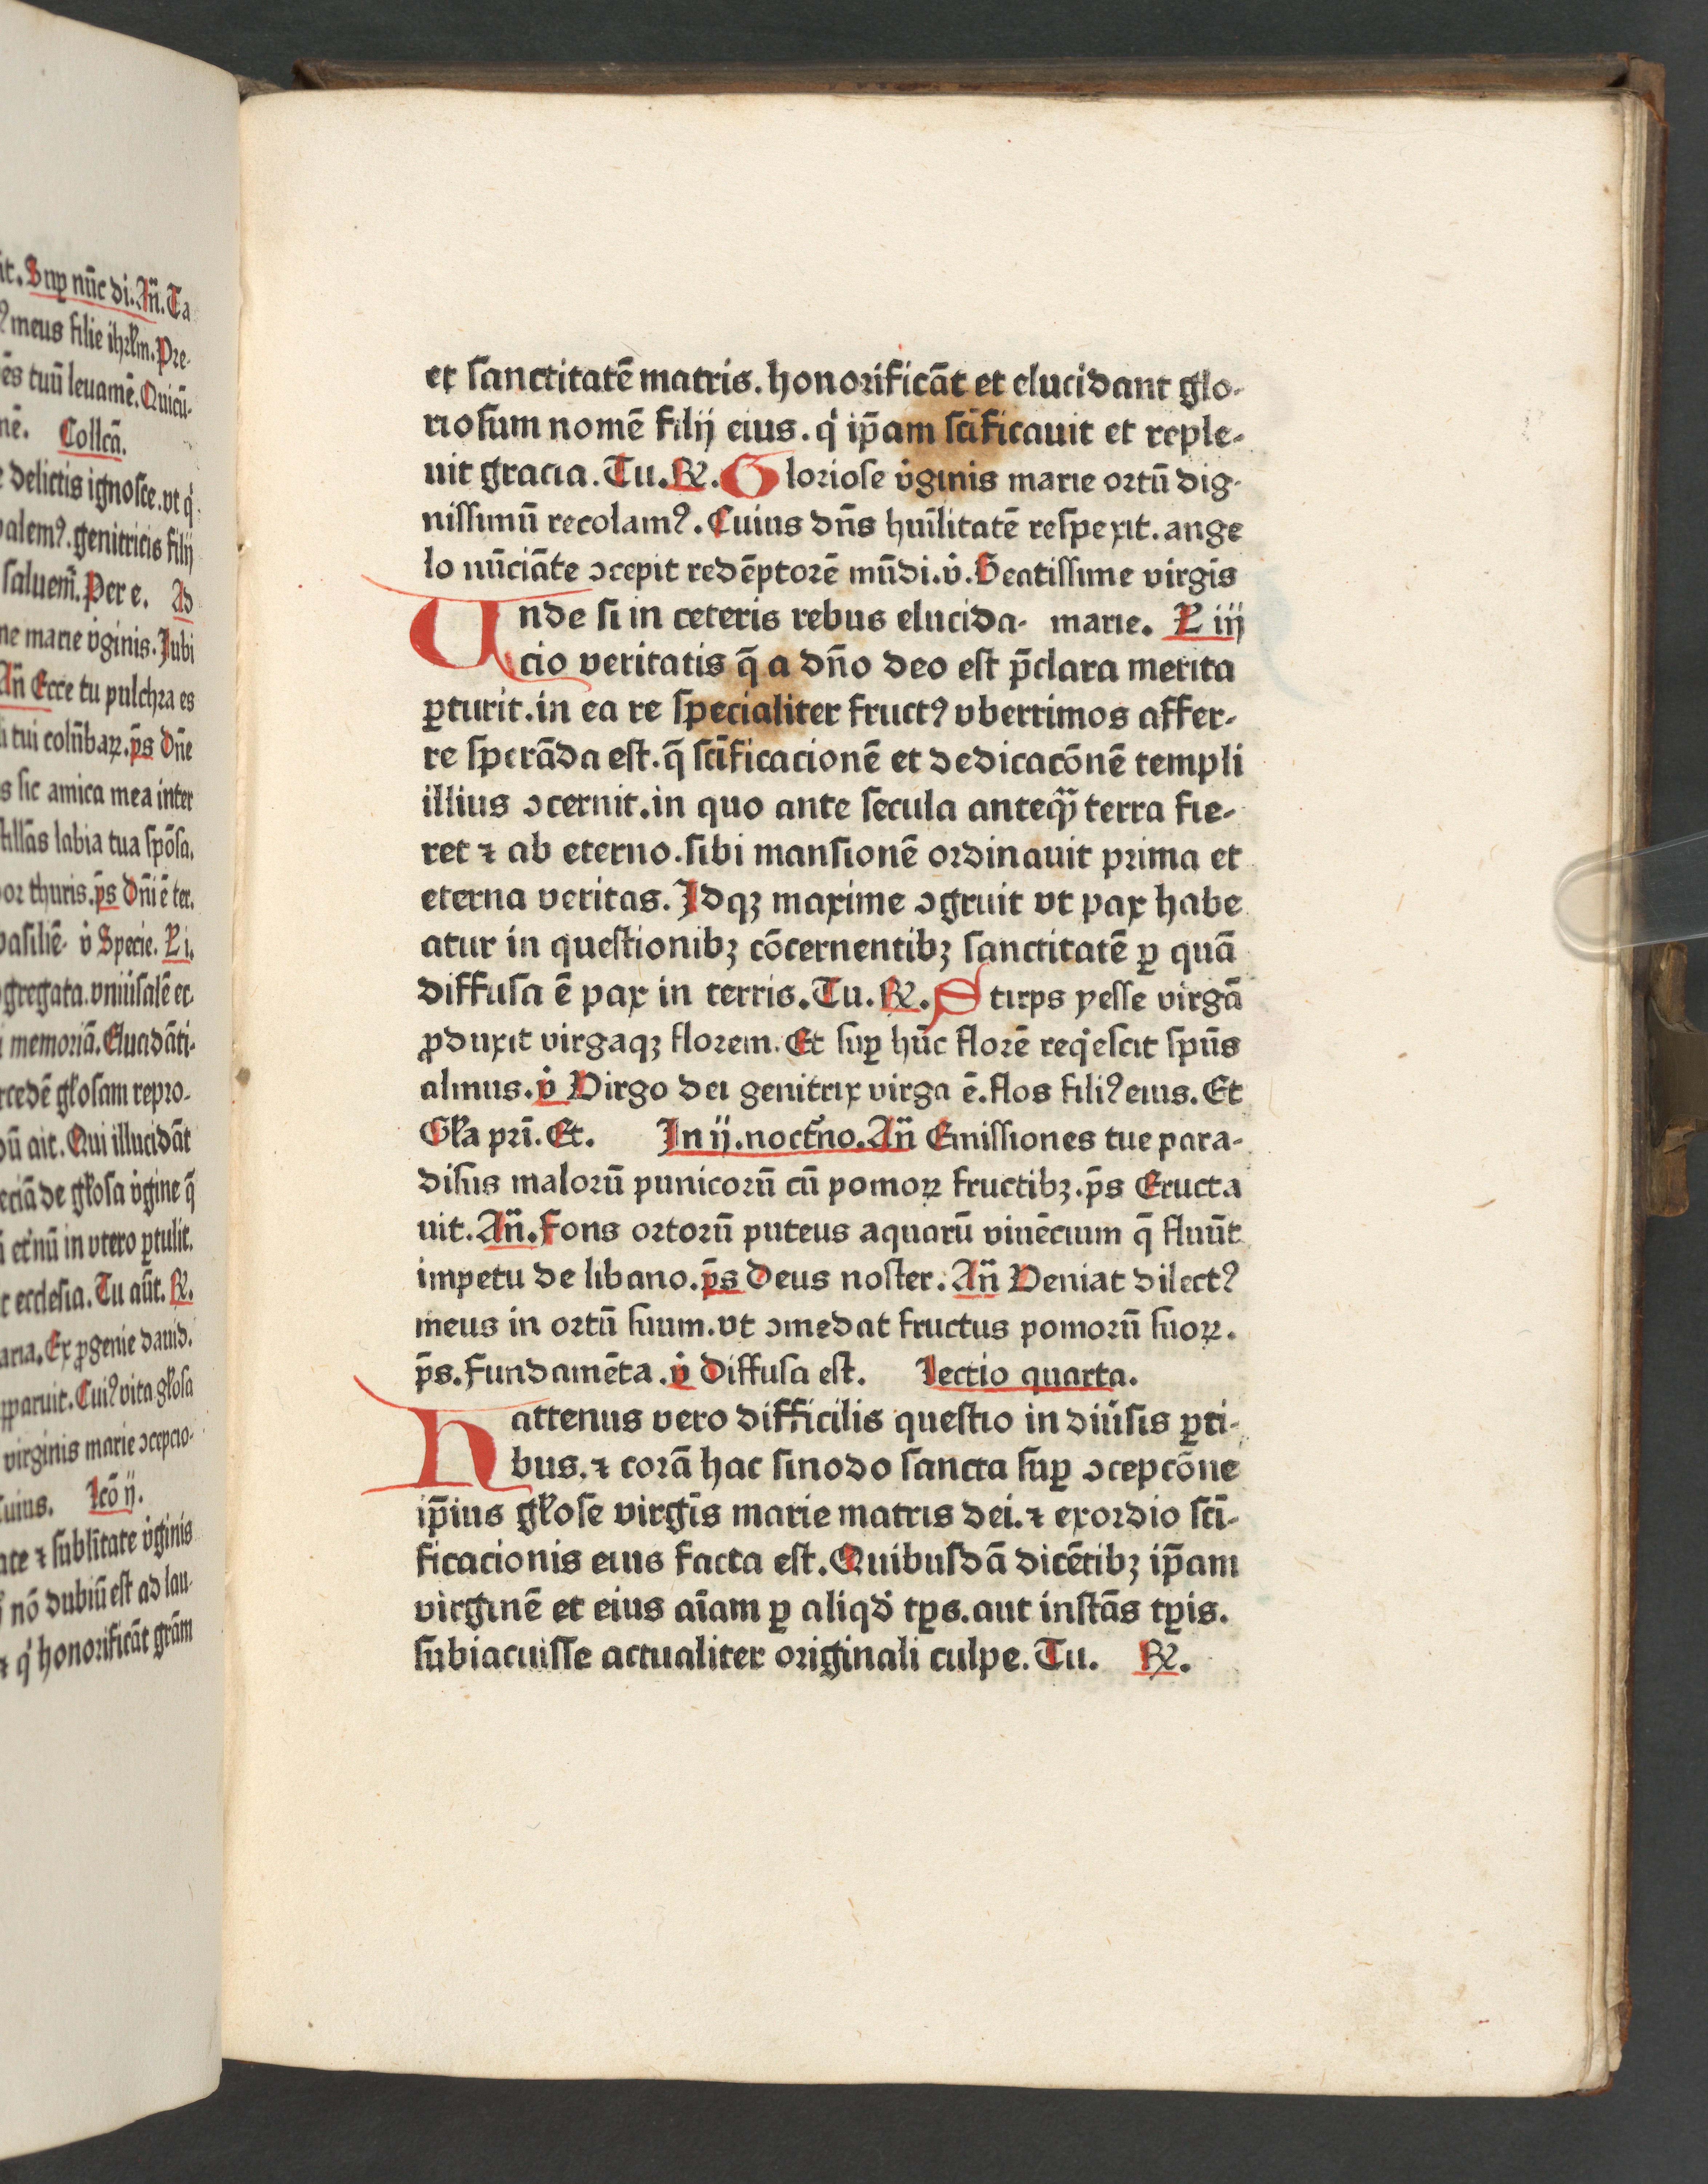 it. Sup nūc di. Añ. Ta
meus filie ihrłm. Pre-
ēs tuū leuamē. Quicū-
nē. Collcā.
delictis ignosce. vt q̇
alemꝰ. genitricis filij
saluem̄. Per e. Ad
ne marie v̇ginis. Jubi
Añ Ecce tu pulchra es
tui colūbaꝝ. p̄s Dn̄e
s sic amica mea inter
stillās labia tua spōsa.
or thuris. p̄s Dn̄i ē ter.
basiliē. v̇ Specie. Ł i.
gregata. vniu̇salē ec
memoriā. Elucidāti-
rcedē głosam repro-
dū ait. Qui illucidāt
eciā de głosa v̇gine q̄
et̓nū in vtero ꝑtulit.
c ecclesia. Tu aūt. ℟.
aria. Ex ꝓgenie dauid.
pparuit. Cuiꝰ vita głosa
virginis marie ↄcepcio-
suius. Łcō ij.
ate ⁊ sublitate v̇ginis
nō dubiū est ad lau-
⁊ q̇ honorificāt grām
et sanctitatē matris. honorificāt et elucidant glo-
riosum nomē filij eius. q̇ ip̄am sc̄ificauit et reple-
uit gracia. Tu. ℟. Gloriose v̇ginis marie ortū dig-
nissimū recolamꝰ. Cuius dn̄s huīlitatē respexit. ange
lo nūciāte ↄcepit redēptorē mūdi. v̇. Beatissime virgīs
Unde si in ceteris rebus elucida- marie. Ł iij
cio veritatis q̄ a dn̄o deo est p̄clara merita
ꝑturit. in ea re specialiter fructꝰ vberrimos affer-
re sperāda est. q̄ sc̄ificacionē et dedicacōnē templi
illius ↄcernit. in quo ante secula anteqꝫ terra fie-
ret ⁊ ab eterno. sibi mansionē ordinauit prima et
eterna veritas. Idqꝫ maxime ↄgruit vt pax habe
atur in questionibꝫ cōcernentibꝫ sanctitatē ꝑ quā
diffusa ē pax in terris. Tu. ℟. Stirps yesse virgā
ꝓduxit virgaqꝫ florem. Et suꝑ hūc florē req̇escit spūs
almus. v̇ Virgo dei genitrix virga ē. flos filiꝰ eius. Et
Gła pri̅. Et. In ij. noct̓no. Añ Emissiones tue para-
disus malorū punicorū cū pomoꝝ fructibꝫ. p̄s Eructa
uit. Añ. Fons ortorū puteus aquarū viuēcium q̄ fluūt
impetu de libano. p̄s Deus noster. Añ Veniat dilectꝰ
meus in ortū suum. vt ↄmedat fructus pomorū suoꝝ.
p̄s. Fundamēta. v̇ Diffusa est. Lectio quarta.
Hattenus vero difficilis questio in diu̇sis ꝑti-
bus. ⁊ corā hac sinodo sancta suꝑ ↄcepcōne
ip̄ius głose virgīs marie matris dei. ⁊ exordio sc̄i-
ficacionis eius facta est. Quibusdā dicētibꝫ ip̄am
virginē et eius aīam ꝑ aliqd̓ tꝑs. aut instās tꝑis.
subiacuisse actualiter originali culpe. Tu. ℟.